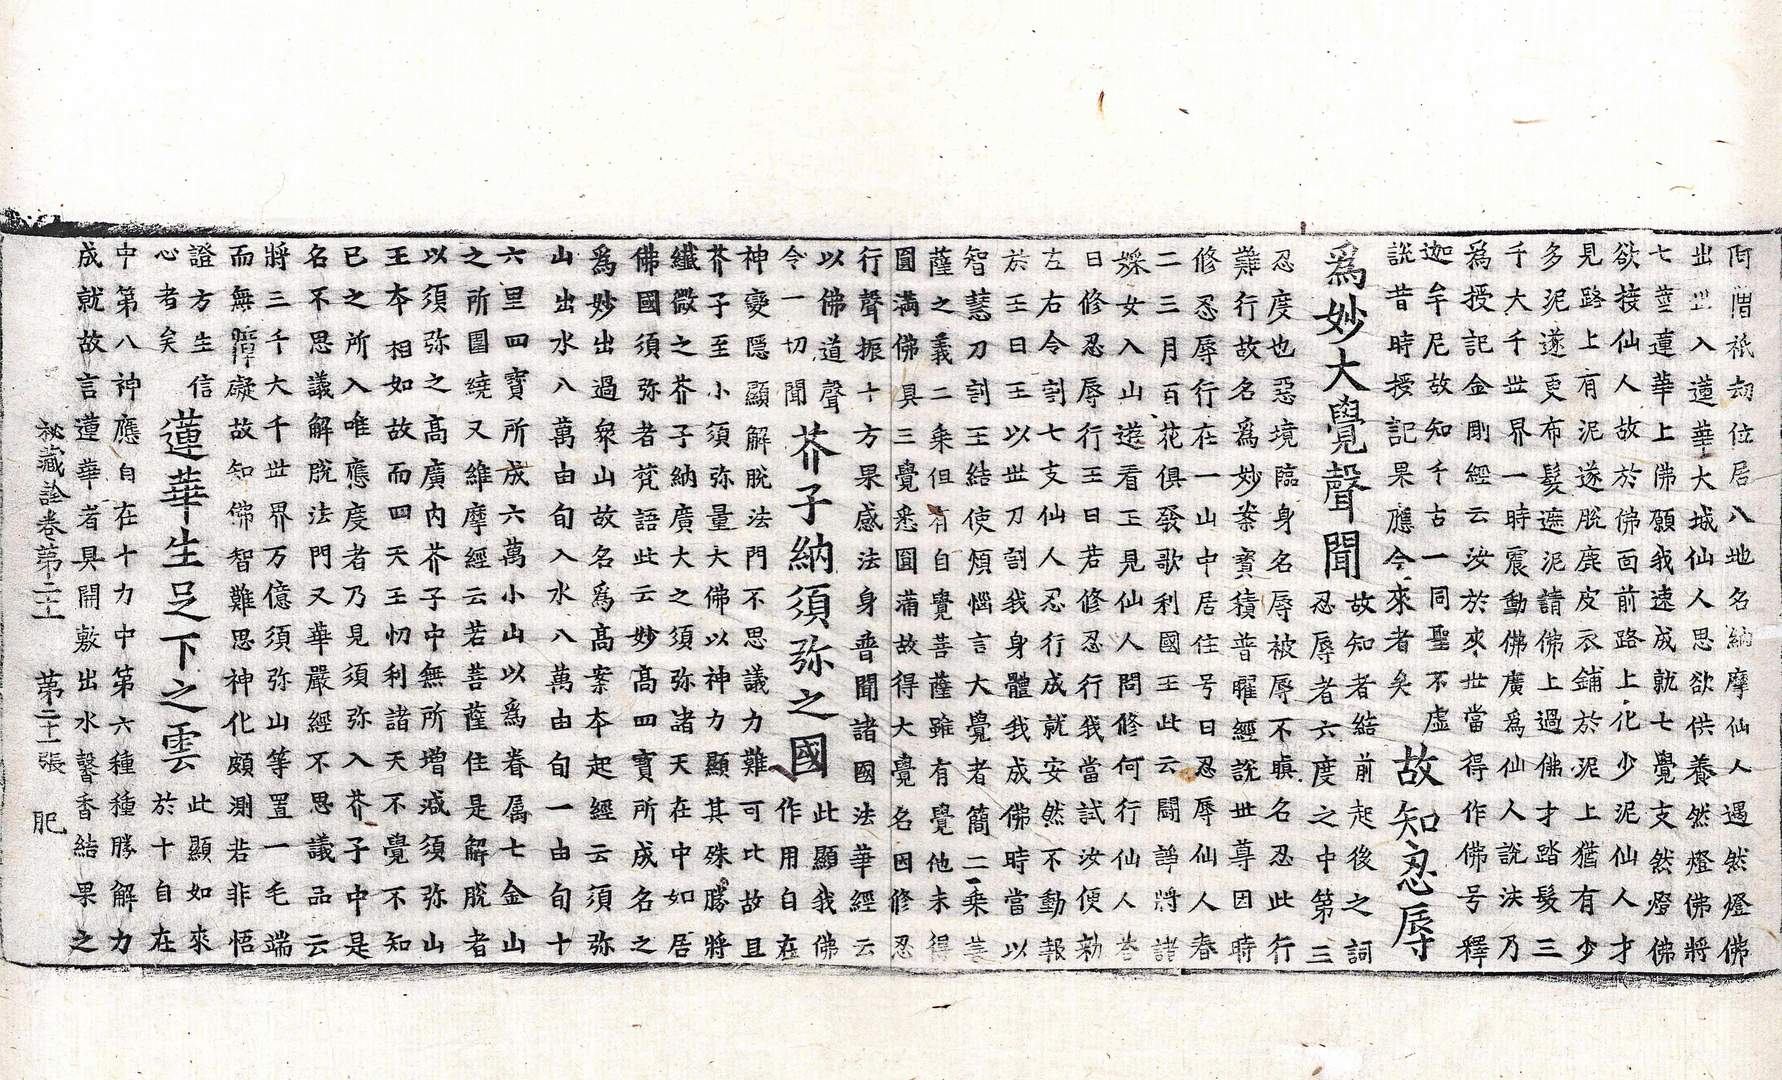 阿僧祇劫位居八地名納摩仙人遇然燈佛
出世入蓮華大城仙人思欲供養然燈佛將
七莖蓮華上佛願我速成就七覺支然燈佛
欲接仙人故於佛面前路上化少泥仙人才
見路上有泥遂脫鹿皮衣鋪於泥上猶有少
多泥遂更布髮遮泥請佛上過佛才踏髮三
千大千世界一時震動佛廣為仙人說法乃
為授記金剛經云汝於來世當得作佛号釋
迦牟尼故知千古一同聖不虛
說昔時授記果應今來者矣
故知忍辱
為妙大覺聲聞
故知者結前起後之詞
忍辱者六度之中第三
忍度也惡境臨身名辱被辱不瞋名忍此行
難行故名為妙案寶積普曜經說世尊因時
修忍辱行在一山中居住号曰忍辱仙人春
二三月百花俱發歌利國王此云鬪諍將諸
婇女入山遊看王見仙人問修何行仙人荅
曰修忍辱行王曰若修忍行我當試汝便勑
左右令割七支仙人忍行成就安然不動報
於王曰王以世刀割我身體我成佛時當以
智慧刀割王結使煩惱言大覺者簡二乘菩
薩之義二乘但有自覺菩薩雖有覺他未得
圓滿佛具三覺悉圓滿故得大覺名因修忍
行聲振十方果感法身普聞諸國法華經云
以佛道聲
令一切聞
芥子納須弥之國
此顯我佛
作用自在
神變隱顯解脫法門不思議力難可比故且
芥子至小須弥量大佛以神力顯其殊勝將
纖微之芥子納廣大之須弥諸天在中如居
佛國須弥者梵語此云妙高四寶所成名之
為妙出過衆山故名為高案本起經云須弥
山出水八萬由旬入水八萬由旬一由旬十
六里四寶所成六萬小山以為眷属七金山
之所圍繞又維摩經云若菩薩住是解脫者
以須弥之高廣內芥子中無所增減須弥山
王本相如故而四天王忉利諸天不覺不知
己之所入唯應度者乃見須弥入芥子中是
名不思議解脫法門又華嚴經不思議品云
將三千大千世界万億須弥山等置一毛端
而無障礙故知佛智難思神化頗測若非悟
證方生信
心者矣
蓮華生足下之雲
此顯如來
於十自在
中第八神應自在十力中第六種種勝解力
成就故言蓮華者具開敷出水馨香結果之
秘藏詮卷第二十　第二十一張　肥